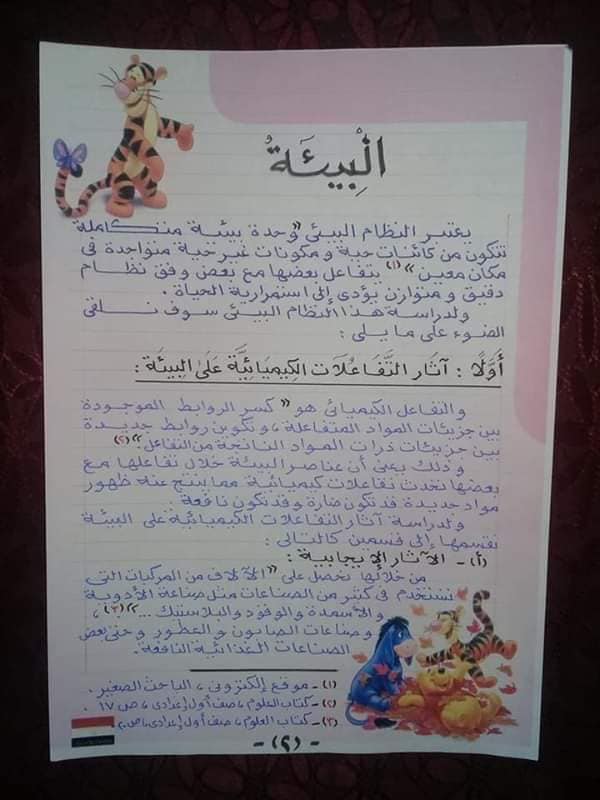 الْبِيئَةُ
يعتبر النظام البيئى "وحدة بيئية متكاملة
تتكون من كائنات حية و مكونات غير حية متواجدة فى
مكان معين" (١) يتفاعل بعضها مع بعض وفق نظام
دقيق و متوازن يؤدى إلى استمرارية الحياة .
ولدراسة هذا النظام البيئى سوف نلقى
الضوء على ما يلى :
أَوَّلًا : آثار التَّفَاعُلَات الكِيميَائِيَّة عَلَى البِيئَة :
والتفاعل الكيميائى هو "كسر الروابط الموجودة
بين جزيئات المواد المتفاعلة ، و تكوين روابط جديدة
بين جزيئات ذرات المواد الناتجة من التفاعل" (٢)
و ذلك يعنى أن عناصر البيئة خلال تفاعلها مع
بعضها تحدث تفاعلات كيميائية مما ينتج عنه ظهور
مواد جديدة قد تكون ضارة و قد تكون نافعة .
و لدراسة آثار التفاعلات الكيميائية على البيئة
نقسمها إلى قسمين كالتالى :
(أ) - الآثار الإيجابية :
من خلالها نحصل على "الآلاف من المركبات التى
تستخدم فى كثير من الصناعات مثل صناعة الأدوية
و الأسمدة و الوقود و البلاستك ..." (٣) ،
و صناعات الصابون و العطور و حتى بعض
الصناعات الغذائية النافعة .
(١) - موقع إلكترونى ، الباحث الصغير .
(٢) - كتاب العلوم ، صف أول إعدادى ، ص ١٧ .
(٣) - كتاب العلوم ، صف أول إعدادى ،
- (٢) -